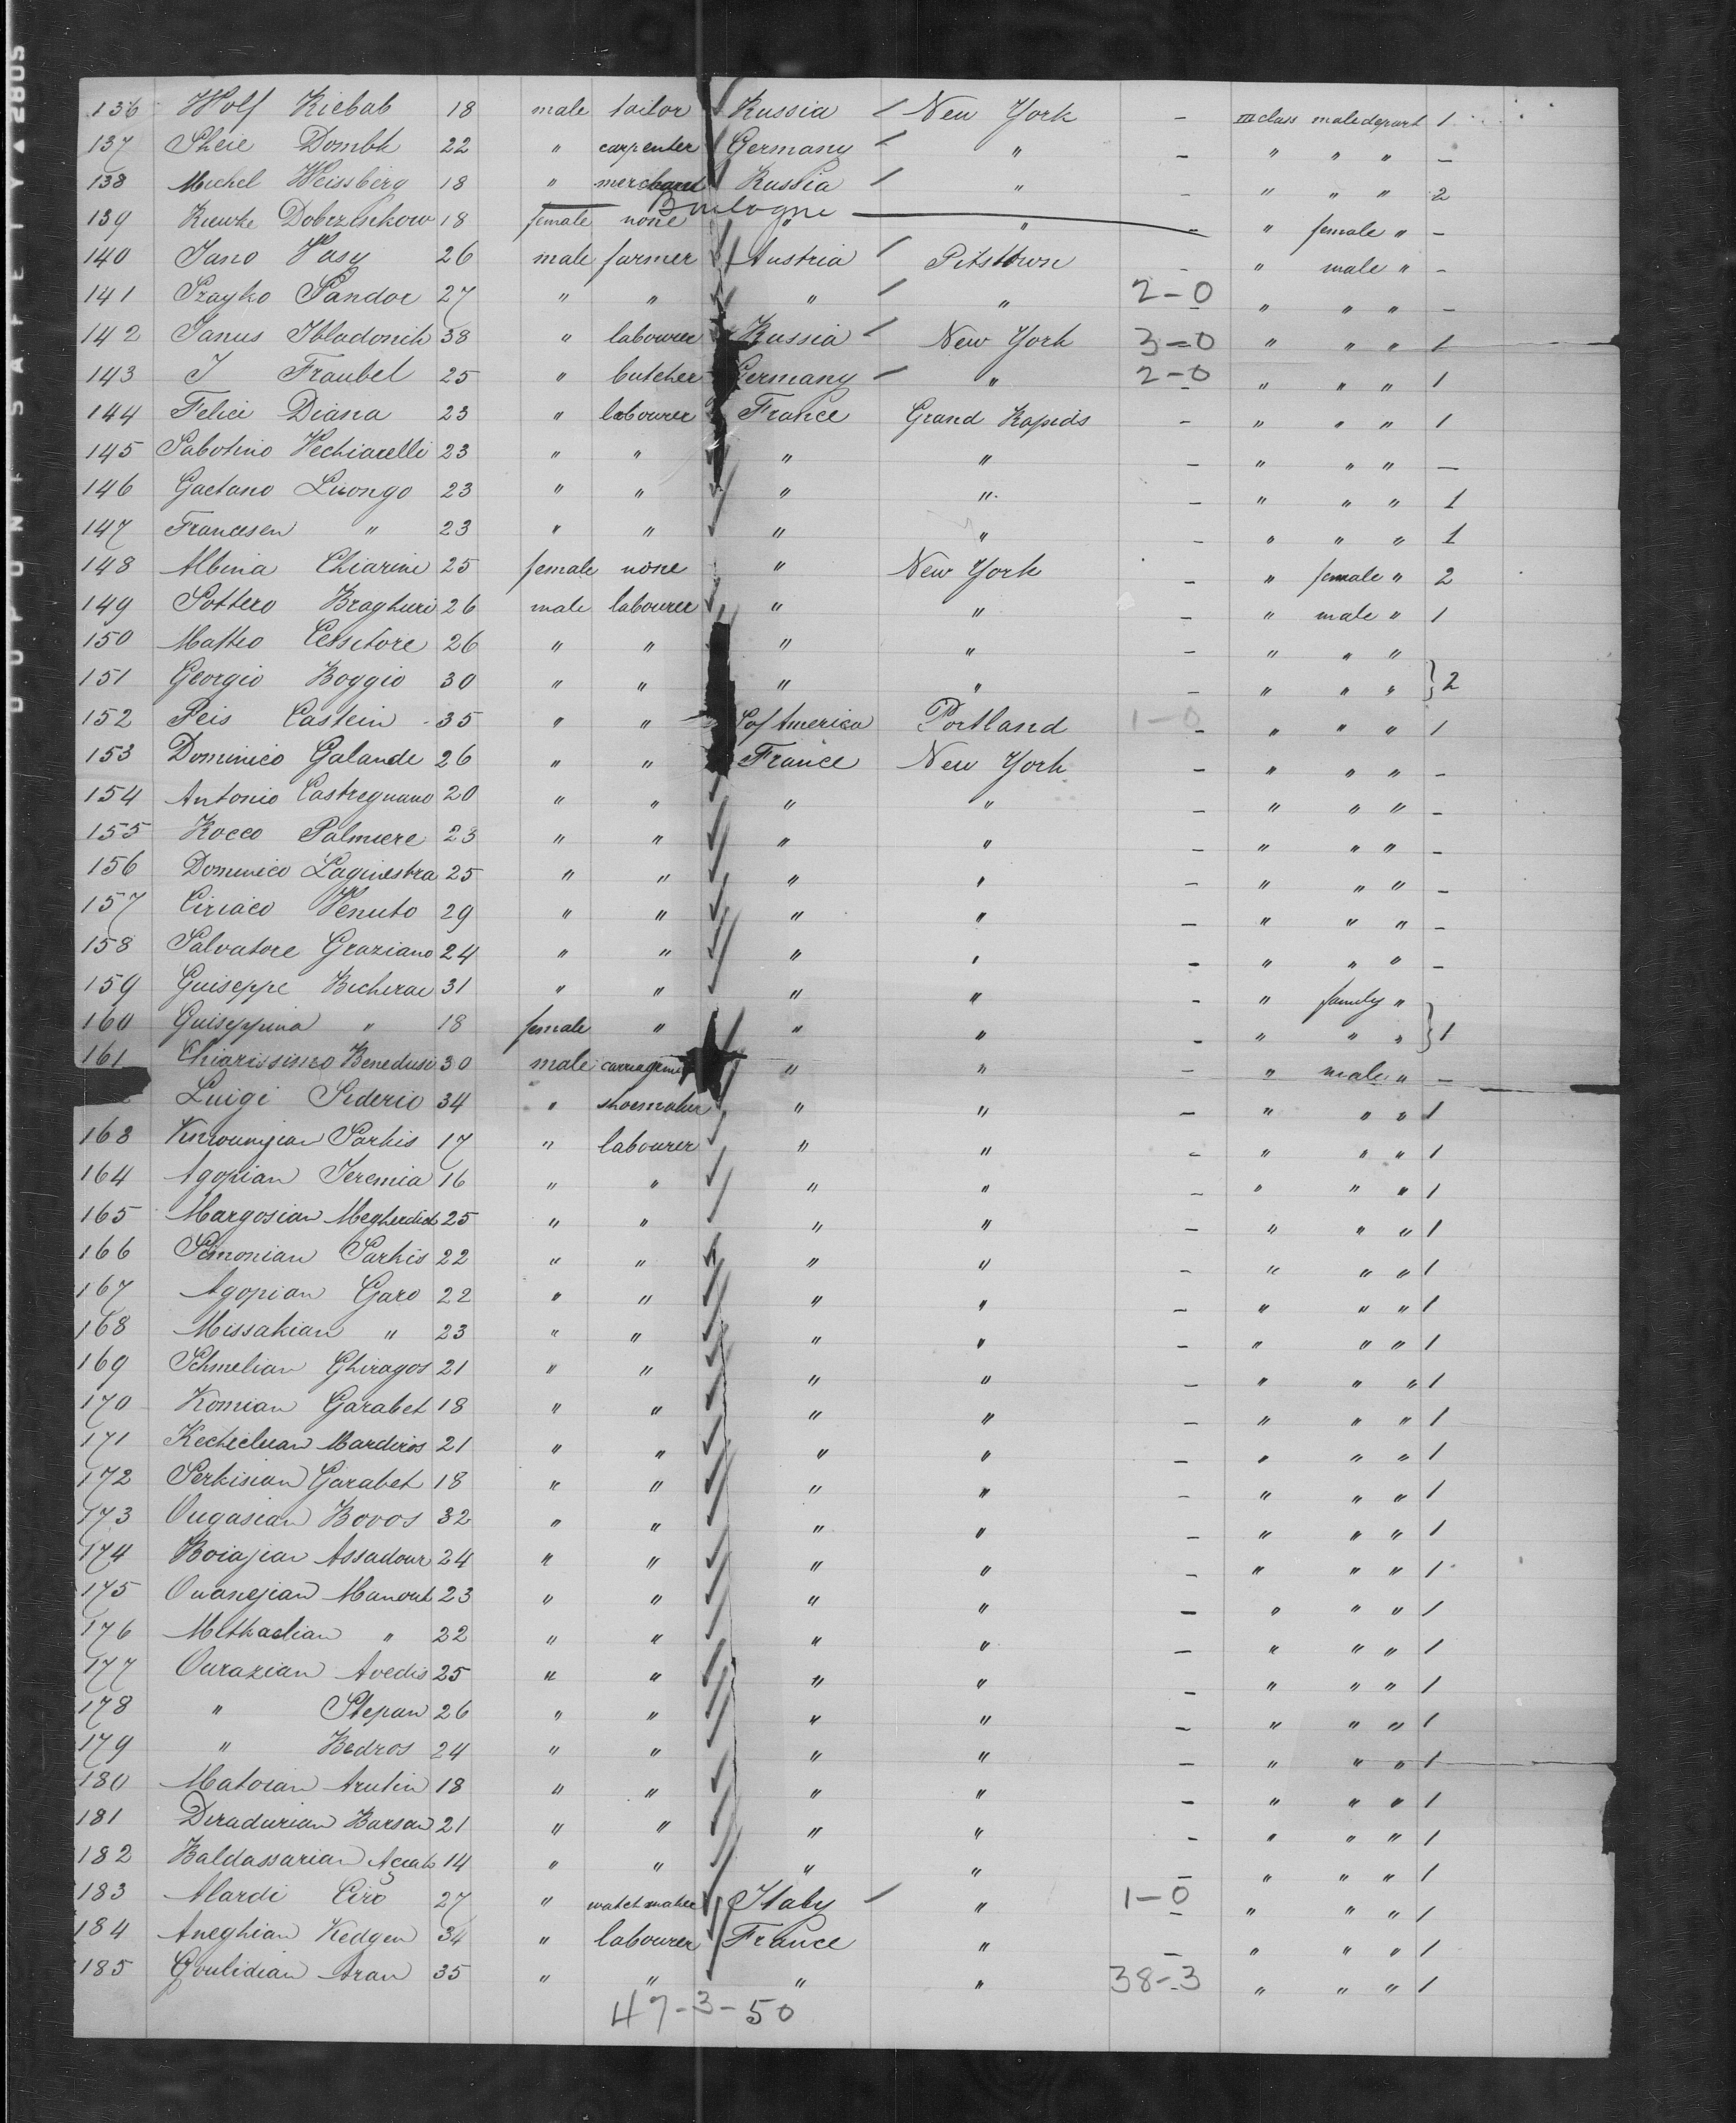 136 Wolf Kiebab 18 male tailor Russia New York - III class male depart 1
137 Scheie Dombk 22 " carpenter Germany " - " " " -
138 Michel Weissberg 18 " merchant Russia " - " " " 2
Boulogne
139 Riewke Dobrzischow 18 female none " " - " female " -
140 Jano Vasy 26 male farmer Austria Pitstown - " male " -
141 Szayko Sandor 27 " " " " 2-0 " " " -
142 Janus 38 " labourer Russia New York 3-0 " " " 1
143 J Fraubel 25 " butcher Germany " 2-0 " " " 1
144 Felici Diana 23 " labourer France Grand Rapids - " " " 1
145 Sabotino Vechiarelli 23 " " " " - " " " -
146 Gaetano Liuongo 23 " " " " - " " " 1
147 Francesen " 23 " " " " - " " " 1
148 Albina Chiarine 25 female none " New York - " female " 2
149 Sottero Braghuri 26 male labourer " " - " male " 1
150 Matteo Cessitore 26 " " " " - " " "
151 Georgio Boggio 30 " " " " - " " " } 2
152 Peis Castein 35 " " S of America Portland 1-0 - " " " 1
153 Dominico Galande 26 " " France New York - " " " -
154 Antonio Castregnano 20 " " " " - " " " -
155 Rocco Palmiere 23 " " " " - " " " -
156 Domenico Laginestra 25 " " " " - " " " -
157 Ciriaco Venuto 29 " " " " - " " " -
158 Salvatore Graziano 24 " " " " - " " " -
159 Guiseppe Bicherae 31 " " " " - " family "
160 Guiseppina " 18 female " " " - " " " } 1
161 Chiarissimo Benedusi 30 male " " - " male " -
Luigi Siderio 34 " shoemaker " " - " " " 1
163 Sarkis 17 " labourer " " - " " " 1
164 Agopian Jeremia 16 " " " " - " " " 1
165 Margosian Megherdich 25 " " " " - " " " 1
166 Simonian Sarkis 22 " " " " - " " " 1
167 Agopian Garo 22 " " " " - " " " 1
168 Missakian " 23 " " " " - " " " 1
169 Schmelian Ghiragos 21 " " " " - " " " 1
170 Komian Garabet 18 " " " " - " " " 1
171 Kechichian Mardiros 21 " " " " - " " " 1
172 Serkisian Garabet 18 " " " " - " " " 1
173 Ougasian Bovos 32 " " " " - " " " 1
174 Boiajian Assadour 24 " " " " - " " " 1
175 Ouanejian Manouk 23 " " " " - " " " 1
176 Mithaelian " 22 " " " " - " " " 1
177 Ourazian Avedis 25 " " " " - " " " 1
178 " Stepan 26 " " " " - " " " 1
179 " Bedros 24 " " " " - " " " 1
180 Matoian Arutin 18 " " " " - " " " 1
181 Diradurian Barsan 21 " " " " - " " " 1
182 Baldassarian 14 " " " " - " " " 1
183 Alardi Ciro 27 " watchmaker Italy " 1-0 " " " 1
184 Aneghian Kedgen 34 " labourer France " - " " " 1
185 Goulidian Aran 35 " " " " 38-3 " " " 1
47-3-50